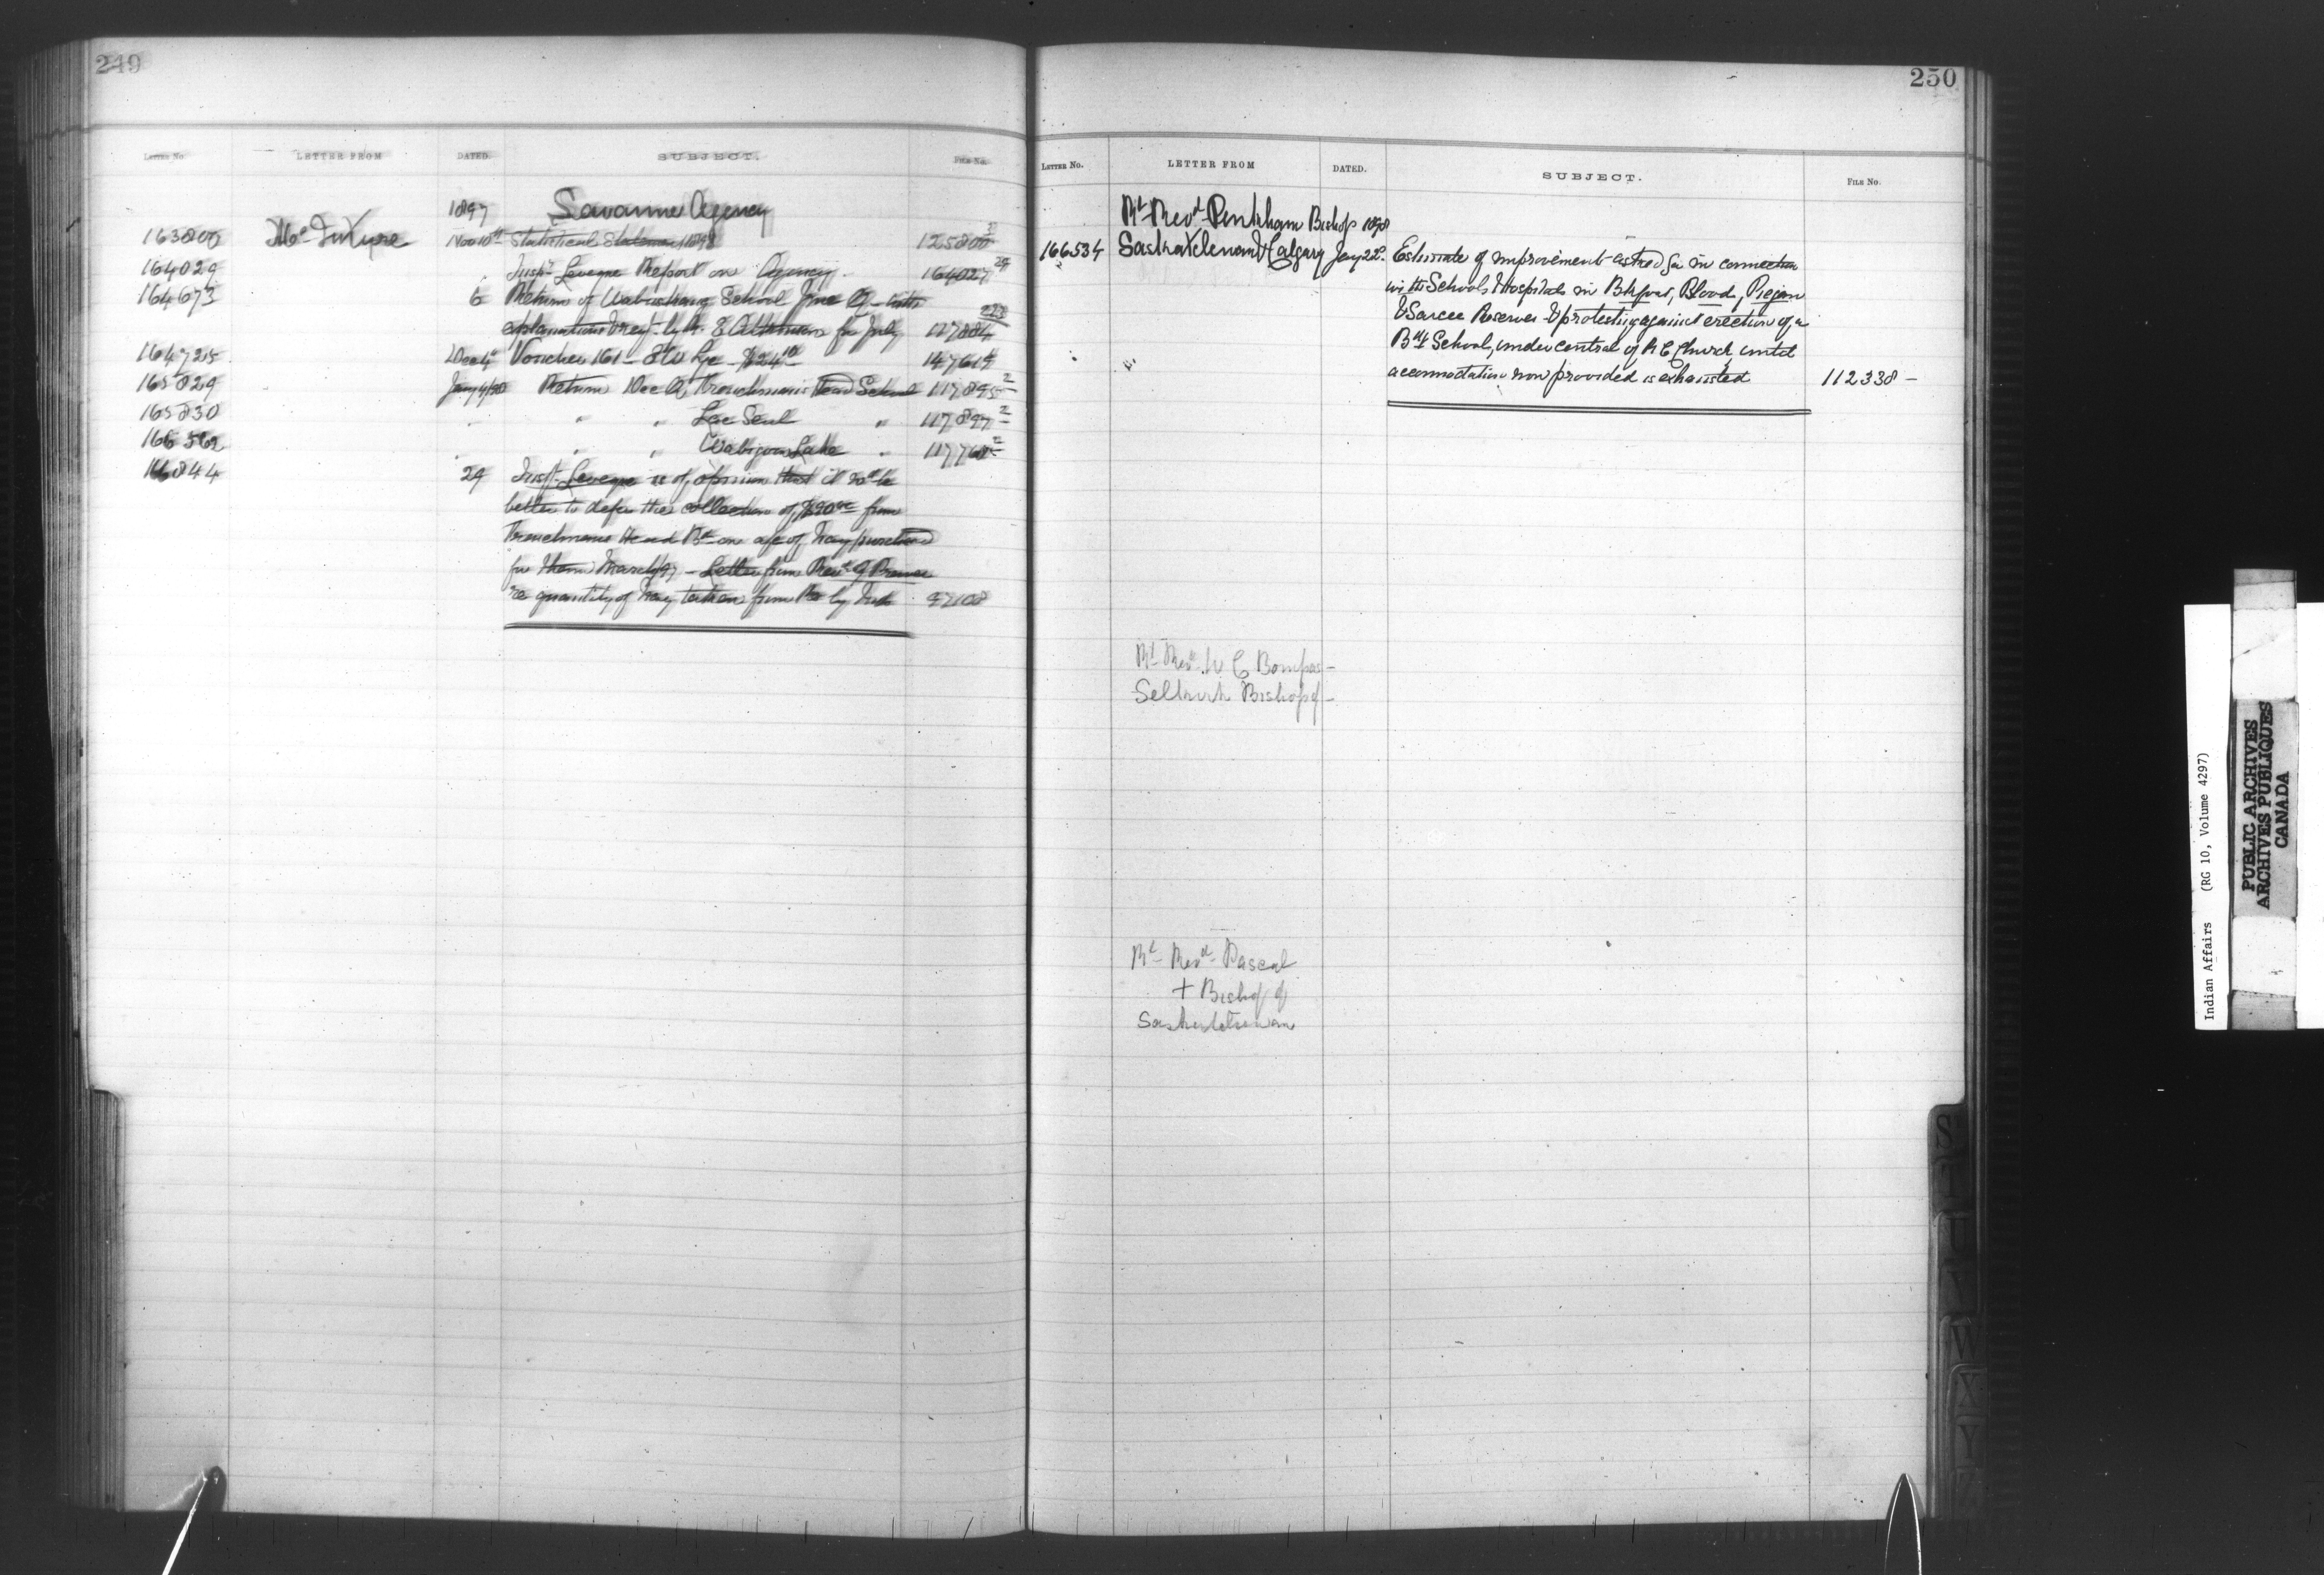 249
LETTER No. LETTER FROM DATED. SUBJECT. FILE No.
1897 Savanne Agency
163800 McIntyre Nov 10th Statistical Statement 1898 125800 3
164029 " Inspr Leveque Report on Agency. 164027 29
164673 6 Return of Wabuskang School June Q - with 223
explanations by for July 127884
164725 Dec 4 Voucher 161 - 8 $24 10 147614
165829 Jany 4/98 Return Dec Q Frenchman's Head School 117895 2
165830 " " " Lac Seul " 117897 2
166562 " " " Wabigoon Lake " 117768 2
16844 29 Inspr Leveque is of opinion that it wd be
better to defer the collection of $90 00 from
Frenchmans Head Bd on a/c of hay purchased
for them March/97 - Letter from Revd
re quantity of hay taken from by Inds 97108
250
LETTER No. LETTER FROM DATED. SUBJECT. FILE No.
Rt Revd Pinkham Bishop 1898
166534 Saskatchewan & Calgary Jany 22d Estimate of improvements asked for in connection
with Schools & Hospitals in Bkfoot, Blood, Piegan
& Sarcee Reserves & protesting against erection of a
Bdg School, under control of R C Church, until
accommodation now provided is exhausted 112338 -
Rt Revd W C Bompas -
Selkirk Bishop of -
Rt Revd Pascal
+ Bishop of
Saskatchewan
S
T
U
V
W
X
Y
Z
Indian Affairs (RG 10, Volume 4297)
PUBLIC ARCHIVES
ARCHIVES PUBLIQUES
CANADA